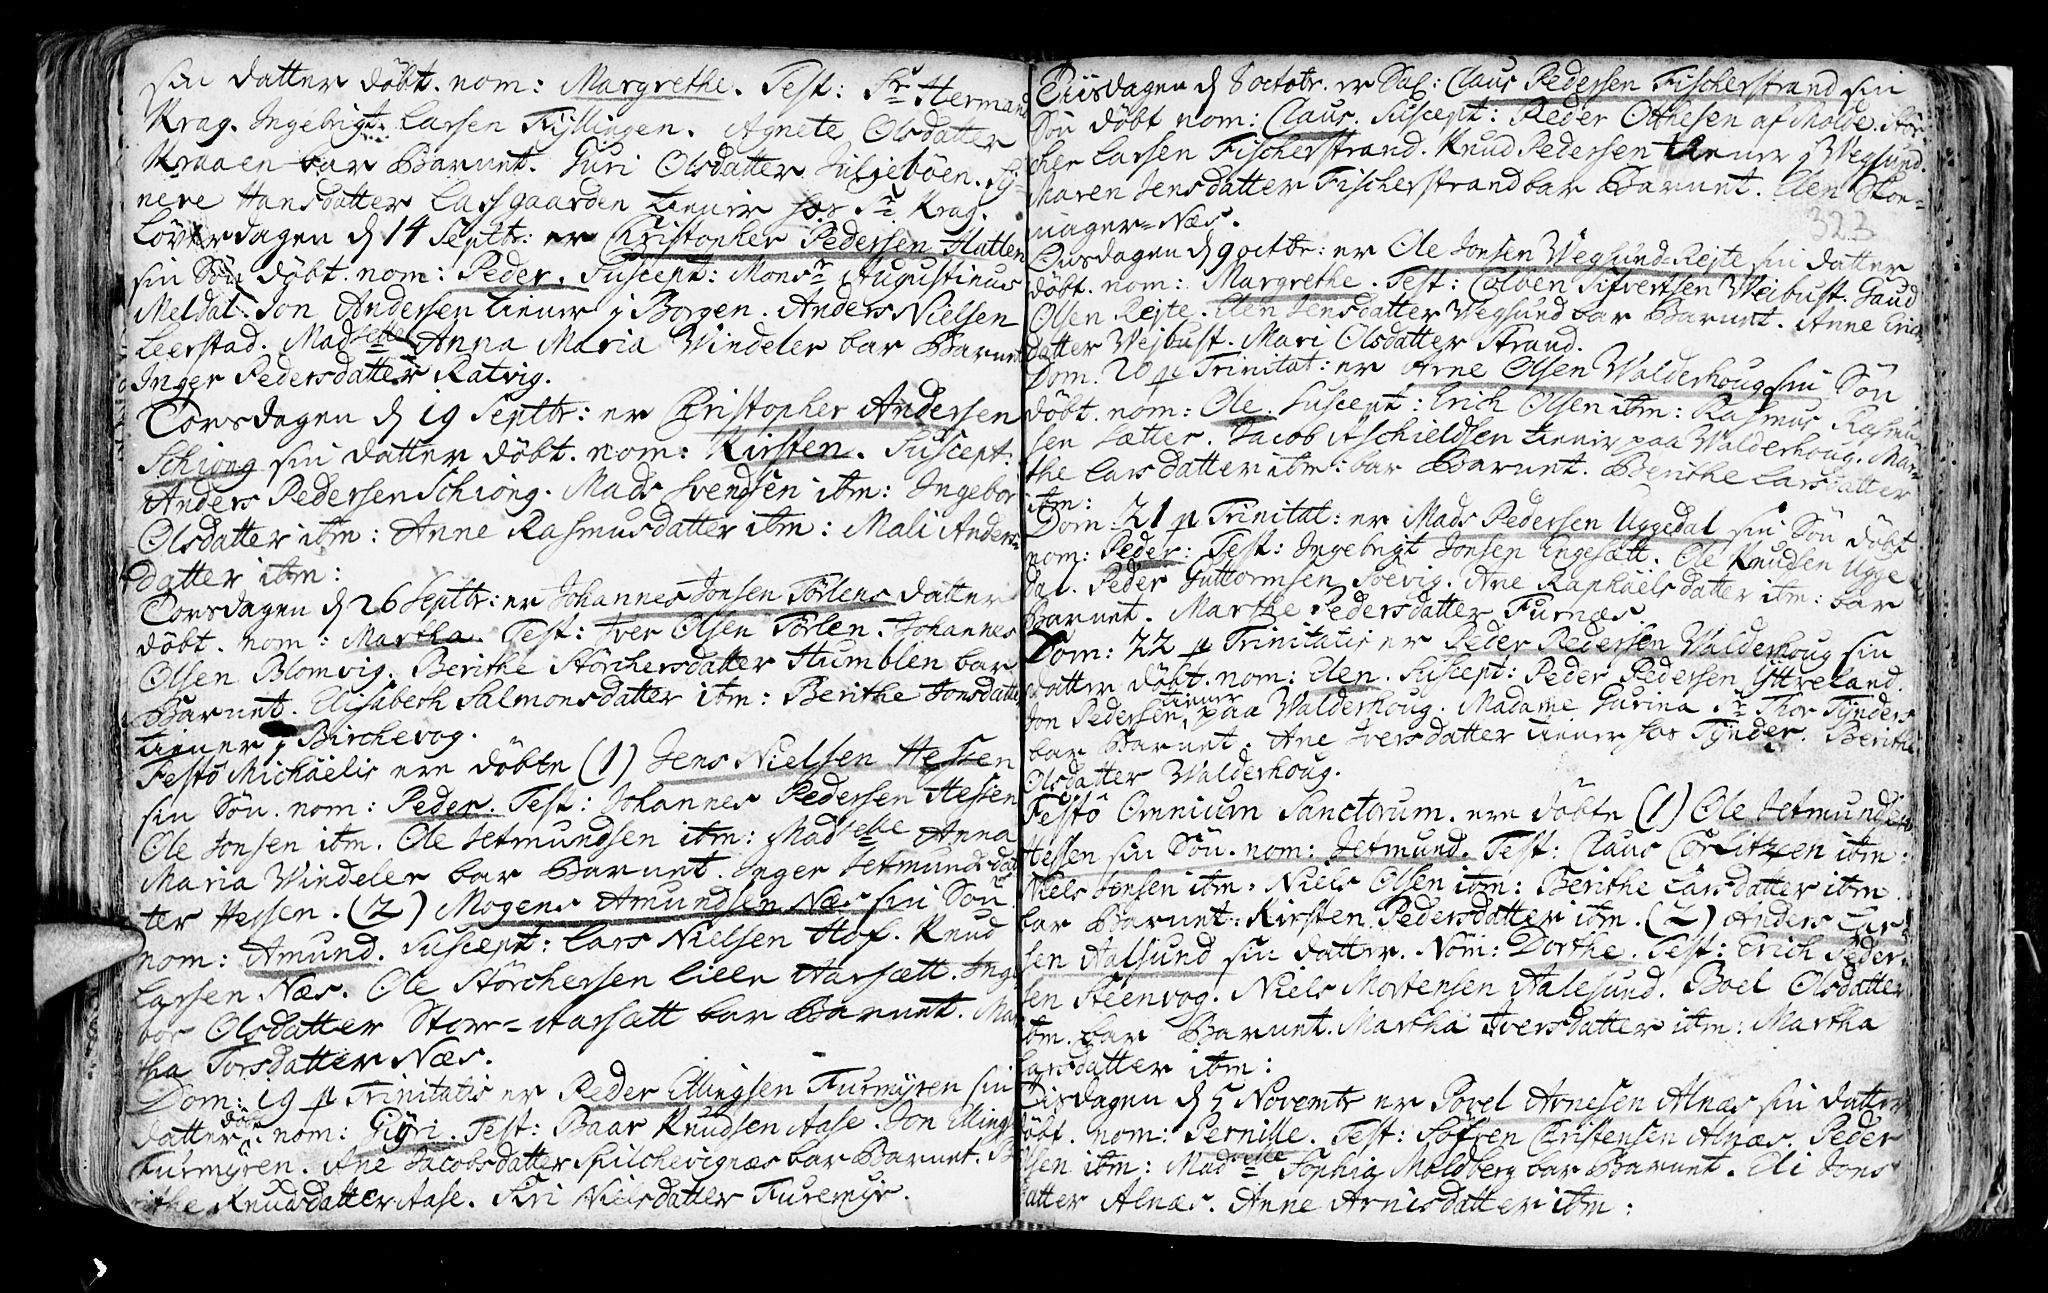 sin datter döbt. nom: Margrethe. Test: Sr Hermand
Krag. Ingebrigt Larsen Fyllingen. Agnete Olsdatter
Kraaen bar Barnet. Guri Olsdatter Juljeböen. Sy-
neve Hansdatter Lassgaarden tiener hos Sr. Krag.
Löverdagen d 14 Septbr: er Christopher Pedersen Hatlen
sin Sön döbt. nom: Peder. Suscept: Monsr Augustinus
Meldal. Jon Andersen tiener i Borgen. Anders Nielsen
Leerstad. Madselle Anna Maria Vindeler bar Barnet
Inger Pedersdatter Ratvig.
Torsdagen d 19 Septbr: er Christopher Andersen
Schiong sin datter döbt. nom: Kirsten. Suscept.
Anders Pedersen Schiong. Mads Svendsen ibm: Ingebor
Olsdatter ibm: Anne Rasmusdatter ibm: Mali Anders-
datter ibm:
Torsdagen d 26 Septbr: er Johannes Jonsen Törlens datter
döbt. nom: Martha. Test: Iver Olsen Törlen. Johannes
Olsen Blomvig. Berithe Störchersdatter Humblen bar
Barnet. Elisabeth Salmonsdatter ibm: Berithe Jonsdatter
tiener i Birchevog.
Festo Michaëlis ere döbte (1) Jens Nielsen Hessen
sin Sön. nom: Peder. Test: Johannes Pedersen Hessen
Ole Jonsen ibm. Ole Jetmundsen ibm: Madselle Anna
Maria Vindeler bar Barnet. Inger Jetmundsdat
ter Hessen. (2) Mogens Amundsen Næs sin Sön
nom: Amund. Suscept: Lars Nielsen Hof. Knud
Larsen Næs. Ole Störchersen lille Aarsætt. Inge
bor Olsdatter Stor-Aarsætt bar Barnet. Mar
tha Torsdatter Næs.
Dom: 19 p Trinitatis er Peder Ellingsen Furmyren sin
datter döbt. nom: Gyri. Test: Baar Knudsen Aase. Jon Ellings
Furmyren. Ane Jacobsdatter Spilchevignæs bar Barnet. B
rithe Knudsdatter Aase. Siri Nielsdatter Furemyr.
Tiisdagen d 8 octobr. er Sal: Claus Pedersen Fischerstrand sin
Sön döbt nom: Claus. Suscept: Peder Othesen af Molde. Stör
cher Larsen Fischerstrand. Knud Pedersen tiener i Wegsund.
Maren Jensdatter Fischerstrand bar Barnet. Elen
nager-Næs.
323
Onsdagen d 9 octbr: er Ole Jonsen Wegsund Rejte sin datter
döbt. nom: Margrethe. Test: Colben Sifvertsen Weibust. Gaud
Olsen Rejte. Elen Jensdatter Wegsund bar Barnet. Anne Erichs
datter Wejbust. Mari Olsdatter Strand.
Dom. 20 p Trinitat: er Arne Olsen Walderhoug sin Sön
döbt. nom: Ole. Suscept: Erich Olsen ibm: Rasmus Rasmu
sen Sætter. Jacob Aschieldsen tiener paa Walderhoug. Mari-
the Larsdatter ibm: bar Barnet. Berithe Larsdatter
ibm:
Dom 21 p Trinitat: er Mads Pedersen Uggedal sin Sön döbt
nom: Peder: Test: Ingebrigt Jonsen Engesætt. Ole Knudsen Ugge
dal. Peder Guttormsen Soevig. Ane Raphaelsdatter ibm: bar
Barnet. Marthe Pedersdatter Furnæs.
Dom: 22 p Trinitatis er Peder Pedersen Walderhoug sin
datter döbt. nom: Elen. Suscept: Peder Pedersen Yttreland.
Jon Pedersen tiener paa Walderhoug. Madame Gurina Sr Thor Tynders
bar Barnet. Ane Iversdatter tiener hos Tynder. Berithe
Olsdatter Walderhoug.
Festo Omnium Sanctorum. ere döbte (1) Ole Jetmundsen
Hessen sin Sön. nom: Jetmund. Test: Claus Corlitzsen ibm:
Niels Jonsen ibm: Niels Olsen ibm: Berithe Larsdatter ibm
bar Barnet: Kirsten Pedersdatter ibm. (2) Anders Lar-
sen Aalsund sin datter. Nom: Dorthe. Test: Erich Peder-
sen Steenvog. Niels Mortensen Aalesund. Boel Olsdatter
ibm. bar Barnet. Martha Iversdatter ibm: Martha
Larsdatter ibm:
Tirsdagen d 5 Novembr er Povel Arnesen Alnæs sin datter
döbt. nom: Pernille. Test: Sofren Christensen Alnæs. Peder
Olsen ibm: Madselle Sophia Moldberg bar Barnet. Eli Jons
datter Alnæs. Anne Arnisdatter ibm: